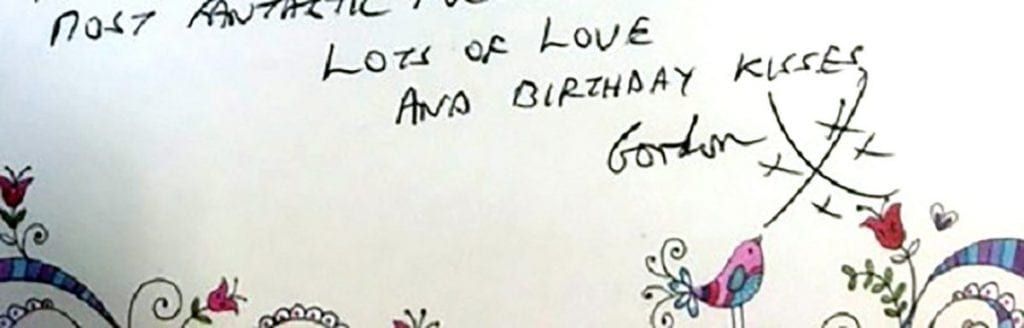 MOST FANTASTIC
LOTS OF LOVE
AND BIRTHDAY KISSES
Gordon
X X X X X